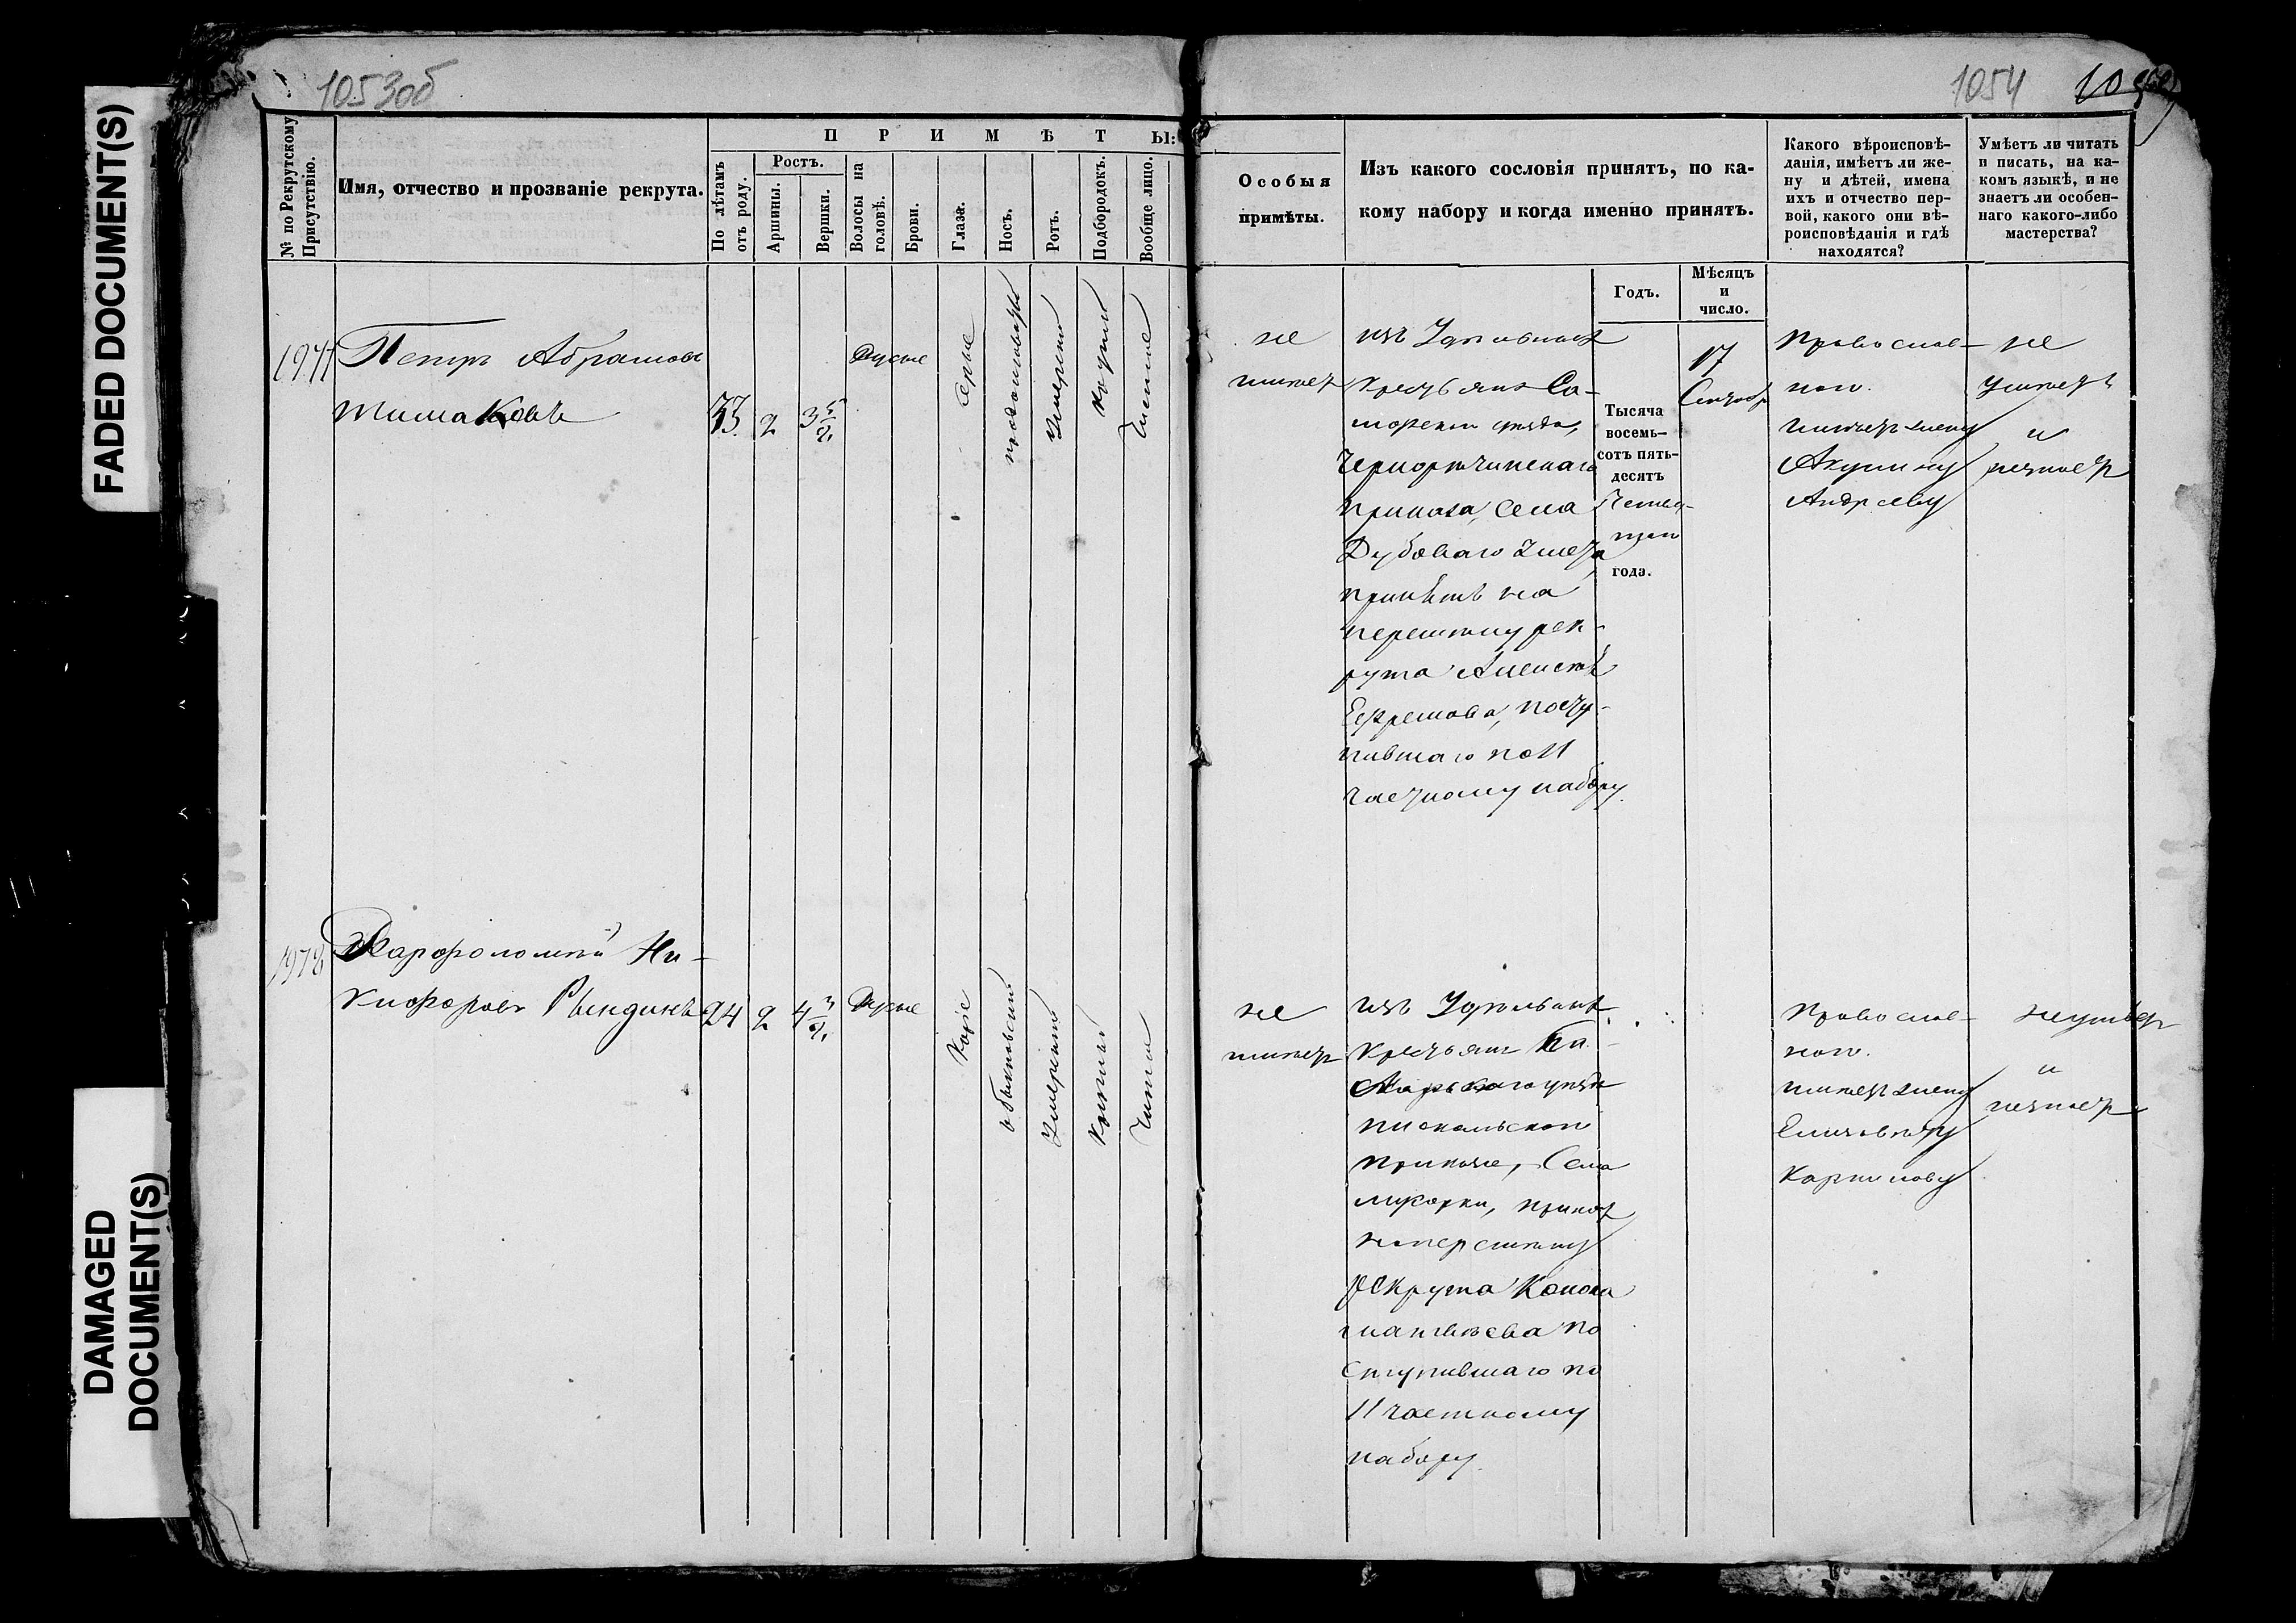 1053об
1054
FADED DOCUMENT(S)
DAMAGED
DOCUMENT(S)
№ по Рекрутскому
Присутствію.
Имя, отчество и прозваніе рекрута.
ПРИМѢТЫ:
По лѣтамъ
отъ роду.
Ростъ.
Аршины.
Вершки.
Волосы на
головѣ.
Брови.
Глаза.
Носъ.
Ротъ.
Подбородокъ.
Вообще лицо.
Особыя
примѣты.
Изъ какого сословія принятъ, по ка-
кому набору и когда именно принятъ.
Годъ.
Мѣсяцъ
и
число.
Какого вѣроисповѣ-
данія, имѣетъ ли же-
ну и дѣтей, имена
ихъ и отчество пер-
вой, какого они вѣ-
роисповѣданія и гдѣ
находятся?
Умѣетъ ли читать
и писать, на ка-
комъ языкѣ, и не
знаетъ ли особен-
наго какого-либо
мастерства?
1977
Петръ Абрамовъ
33
2
3 5/8
Русые
Сѣрые
продолговатый
Умѣренный
Круглый
Чистое
не
имѣет
изъ Удѣльныхъ
крестьянъ Са-
марскаго уѣзда,
Чернорѣчинскаго
приказа, Села
Дубоваго Умета
принятъ на
перемѣну рек-
рута Алексѣя
Ефремова, посту-
пившаго по 11
частному набору.
Тысяча
восемь-
сотъ пять-
десятъ
Четвер-
таго
года.
17
Сентябр
Православ-
наго.
имѣетъ жену
Акулину
Андрееву
не
умѣетъ
и
незнает
1978
Варфоломѣй Ни-
кифоровъ Рындинъ
24
2
4 3/8
Русые
Каріе
обыкновенный
Умѣренный
Круглый
Чистое
не
имѣет
изъ Удѣльныхъ
крестьянъ
уѣзда
приказа, Села
принят
на перемѣну
рекрута Конона
по
ступившаго по
11 частному
набору.
Православ-
наго.
имѣетъ жену
Елизавету
Карпилову
не умѣет
и
незнает